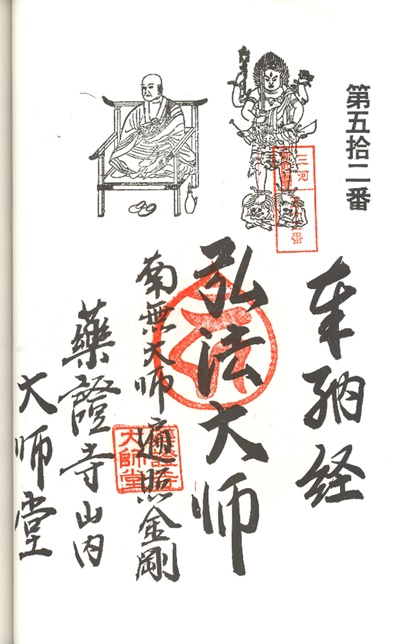 第五拾二番
三河
奉納経
弘法大师
南無大师遍照金剛
藥證寺山内
大师堂
大師堂